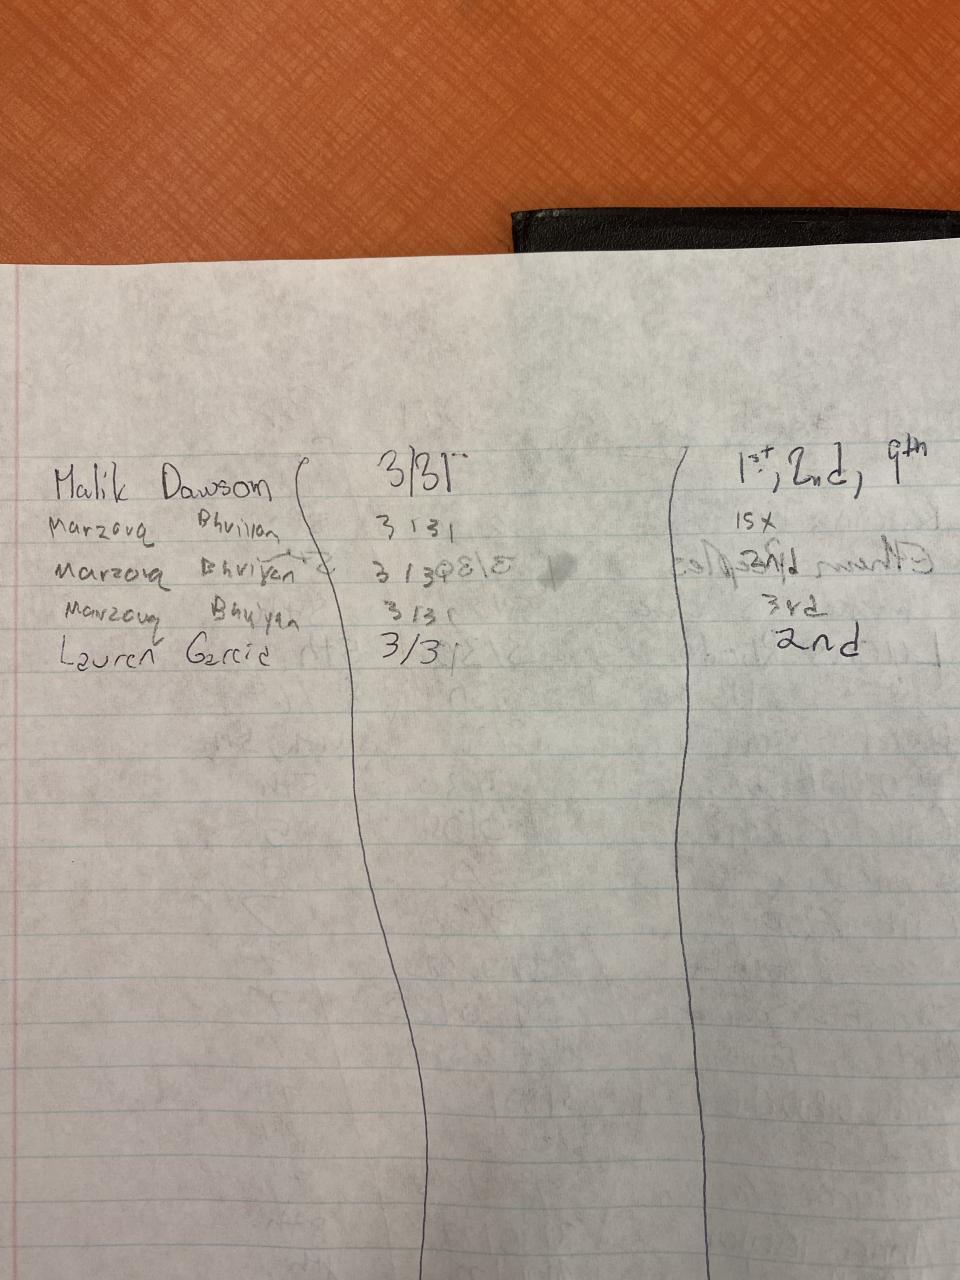 Malik Dawson 3/31 1st, 2nd, 9th
Marzouq Bhuiyan 3/31 1st
Marzouq Bhuiyan 3/31 2nd
Marzouq Bhuiyan 3/31 3rd
Lauren Garcia 3/31 2nd